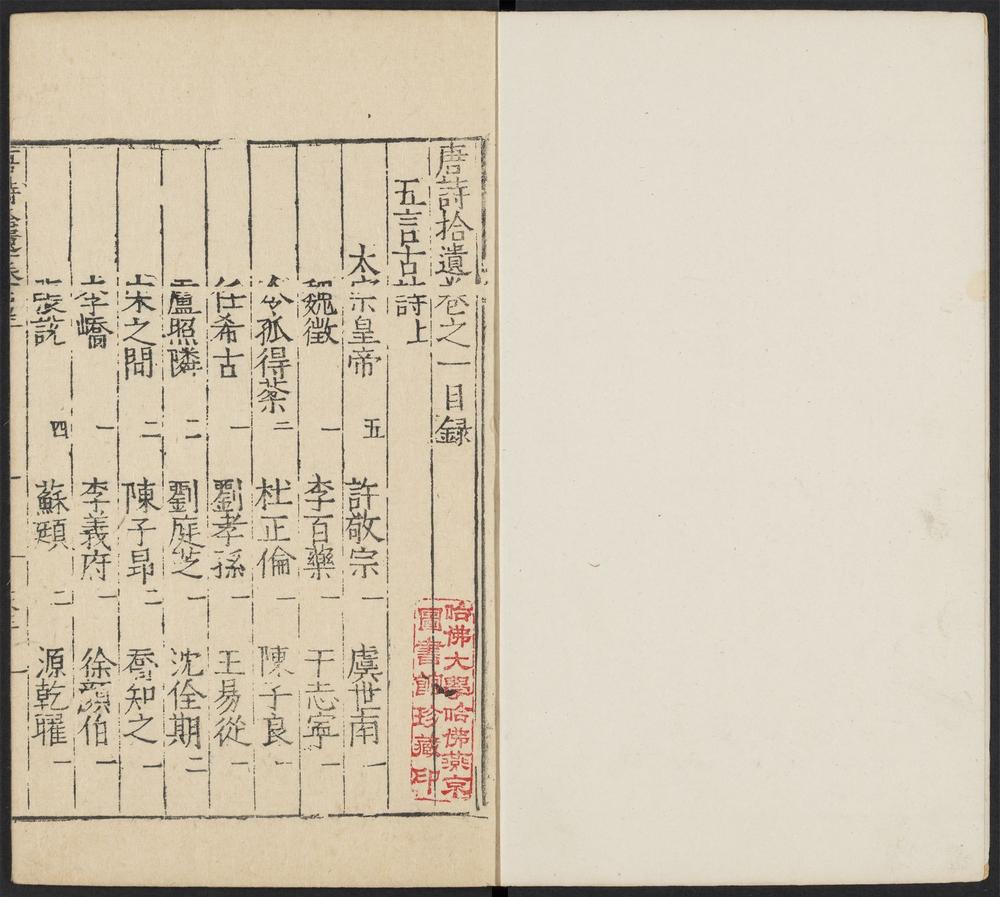 唐詩拾遺卷之一目録
五言古詩上
太宗皇帝 五 許敬宗 一 虞世南 一
魏徵 一 李百藥 一 于志寧 一
令狐得棻 二 杜正倫 一 陳子良 一
任希古 一 劉孝孫 一 王易從 一
盧照隣 二 劉庭芝 一 沈佺期 二
宋之問 二 陳子昻 二 喬知之 一
李嶠 一 李義府 一 徐彦伯 一
張說 四 蘇頲 二 源乾曜 一
哈佛大學哈佛燕京
圖書館珍藏印